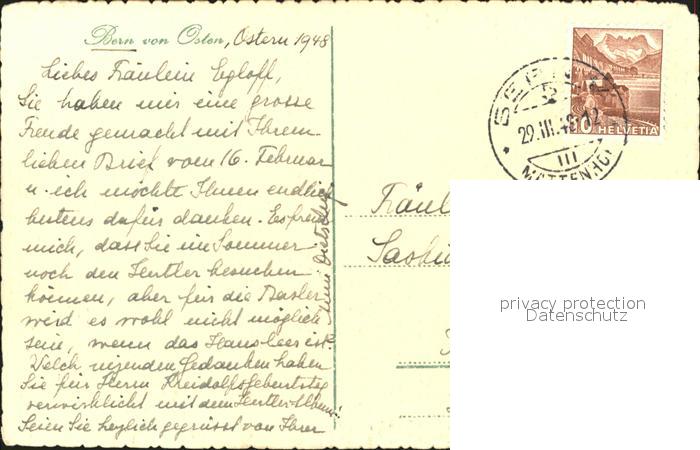 Bern von Osten, Ostern 1948
Liebes Fräulein Egloff,
Sie haben mir eine grosse
Freude gemacht mit Ihrem
lieben Brief vom 16. Februar
u. ich möchte Ihnen endlich
bestens dafür danken. Es freut
mich, dass Sie im Sommer
noch den Hentler besuchen
können, aber für die Basler
wird es wohl nicht möglich
sein, wenn das Haus leer ist.
Welch reizenden Gedanken haben
Sie für Herrn Kreidolfs Geburtstag
verwirklicht mit dem Hentler-Album!
Seien Sie herzlich gegrüsst von Ihrer
BERN
29.III.48-12
III
MATTENHOF
10 HELVETIA
Fräul
Saski
privacy protection
Datenschutz